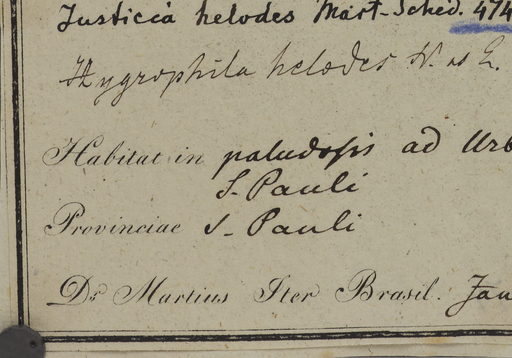 Justicia helodes Mart. Sched. 474
Hygrophila helodes N. ab E.
Habitat in paludosis ad Urb
S. Pauli
Provinciae S. Pauli
Dr. Martius Iter Brasil. Jan